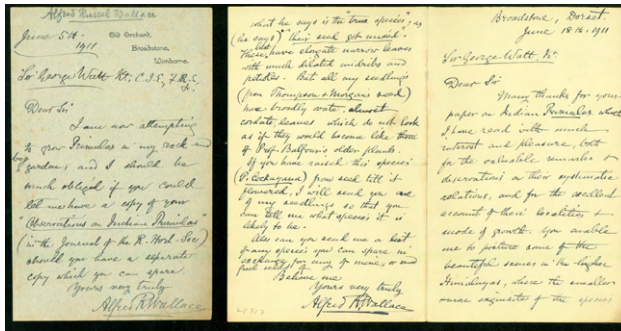 Alfred Russel Wallace
June 5th. 1911
Old Orchard,
Broadstone,
Wimborne.
Sir George Watt Kt; C.I.E, F.R.S.
Dear Sir
I am now attempting
to grow Primulas in my rock and
bog gardens, and I should be
much obliged if you could
let me have a copy of your
"Observations on Indian Primulas"
(in the Journal of the R. Hort. Soc)
should you have a separate
copy which you can spare.
Yours very truly
Alfred R. Wallace
what he says is the "true species", as
(he says) "their seed got mixed".
These have elongate narrow leaves
with much dilated midribs and
petioles. But all my seedlings
(from Thompson & Morgans seed)
have broadly ovate almost
cordate leaves which do not look
as if they would become like those
of Prof. Balfour's older plants.
If you have raised this species
(P. Cockayana) from seed till it
flowered, I will send you one
of my seedlings so that you
can tell me what species it is
likely to be.
Also can you send me a list
of any species you can spare in
exchange for any of mine, or
Believe me
Yours very truly
Alfred R Wallace
Broadstone, Dorset.
June 18th. 1911
Sir George Watt Kt.
Dear Sir
Many thanks for your
paper on Indian Primulas, which
I have read with much
interest and pleasure, both
for the valuable remarks &
observations on their systematic
relations, and for the excellent
account of their localities &
mode of growth. You enable
me to picture some of the
beautiful scenes in the higher
Himalayas, where the smaller
more exquisite of the species